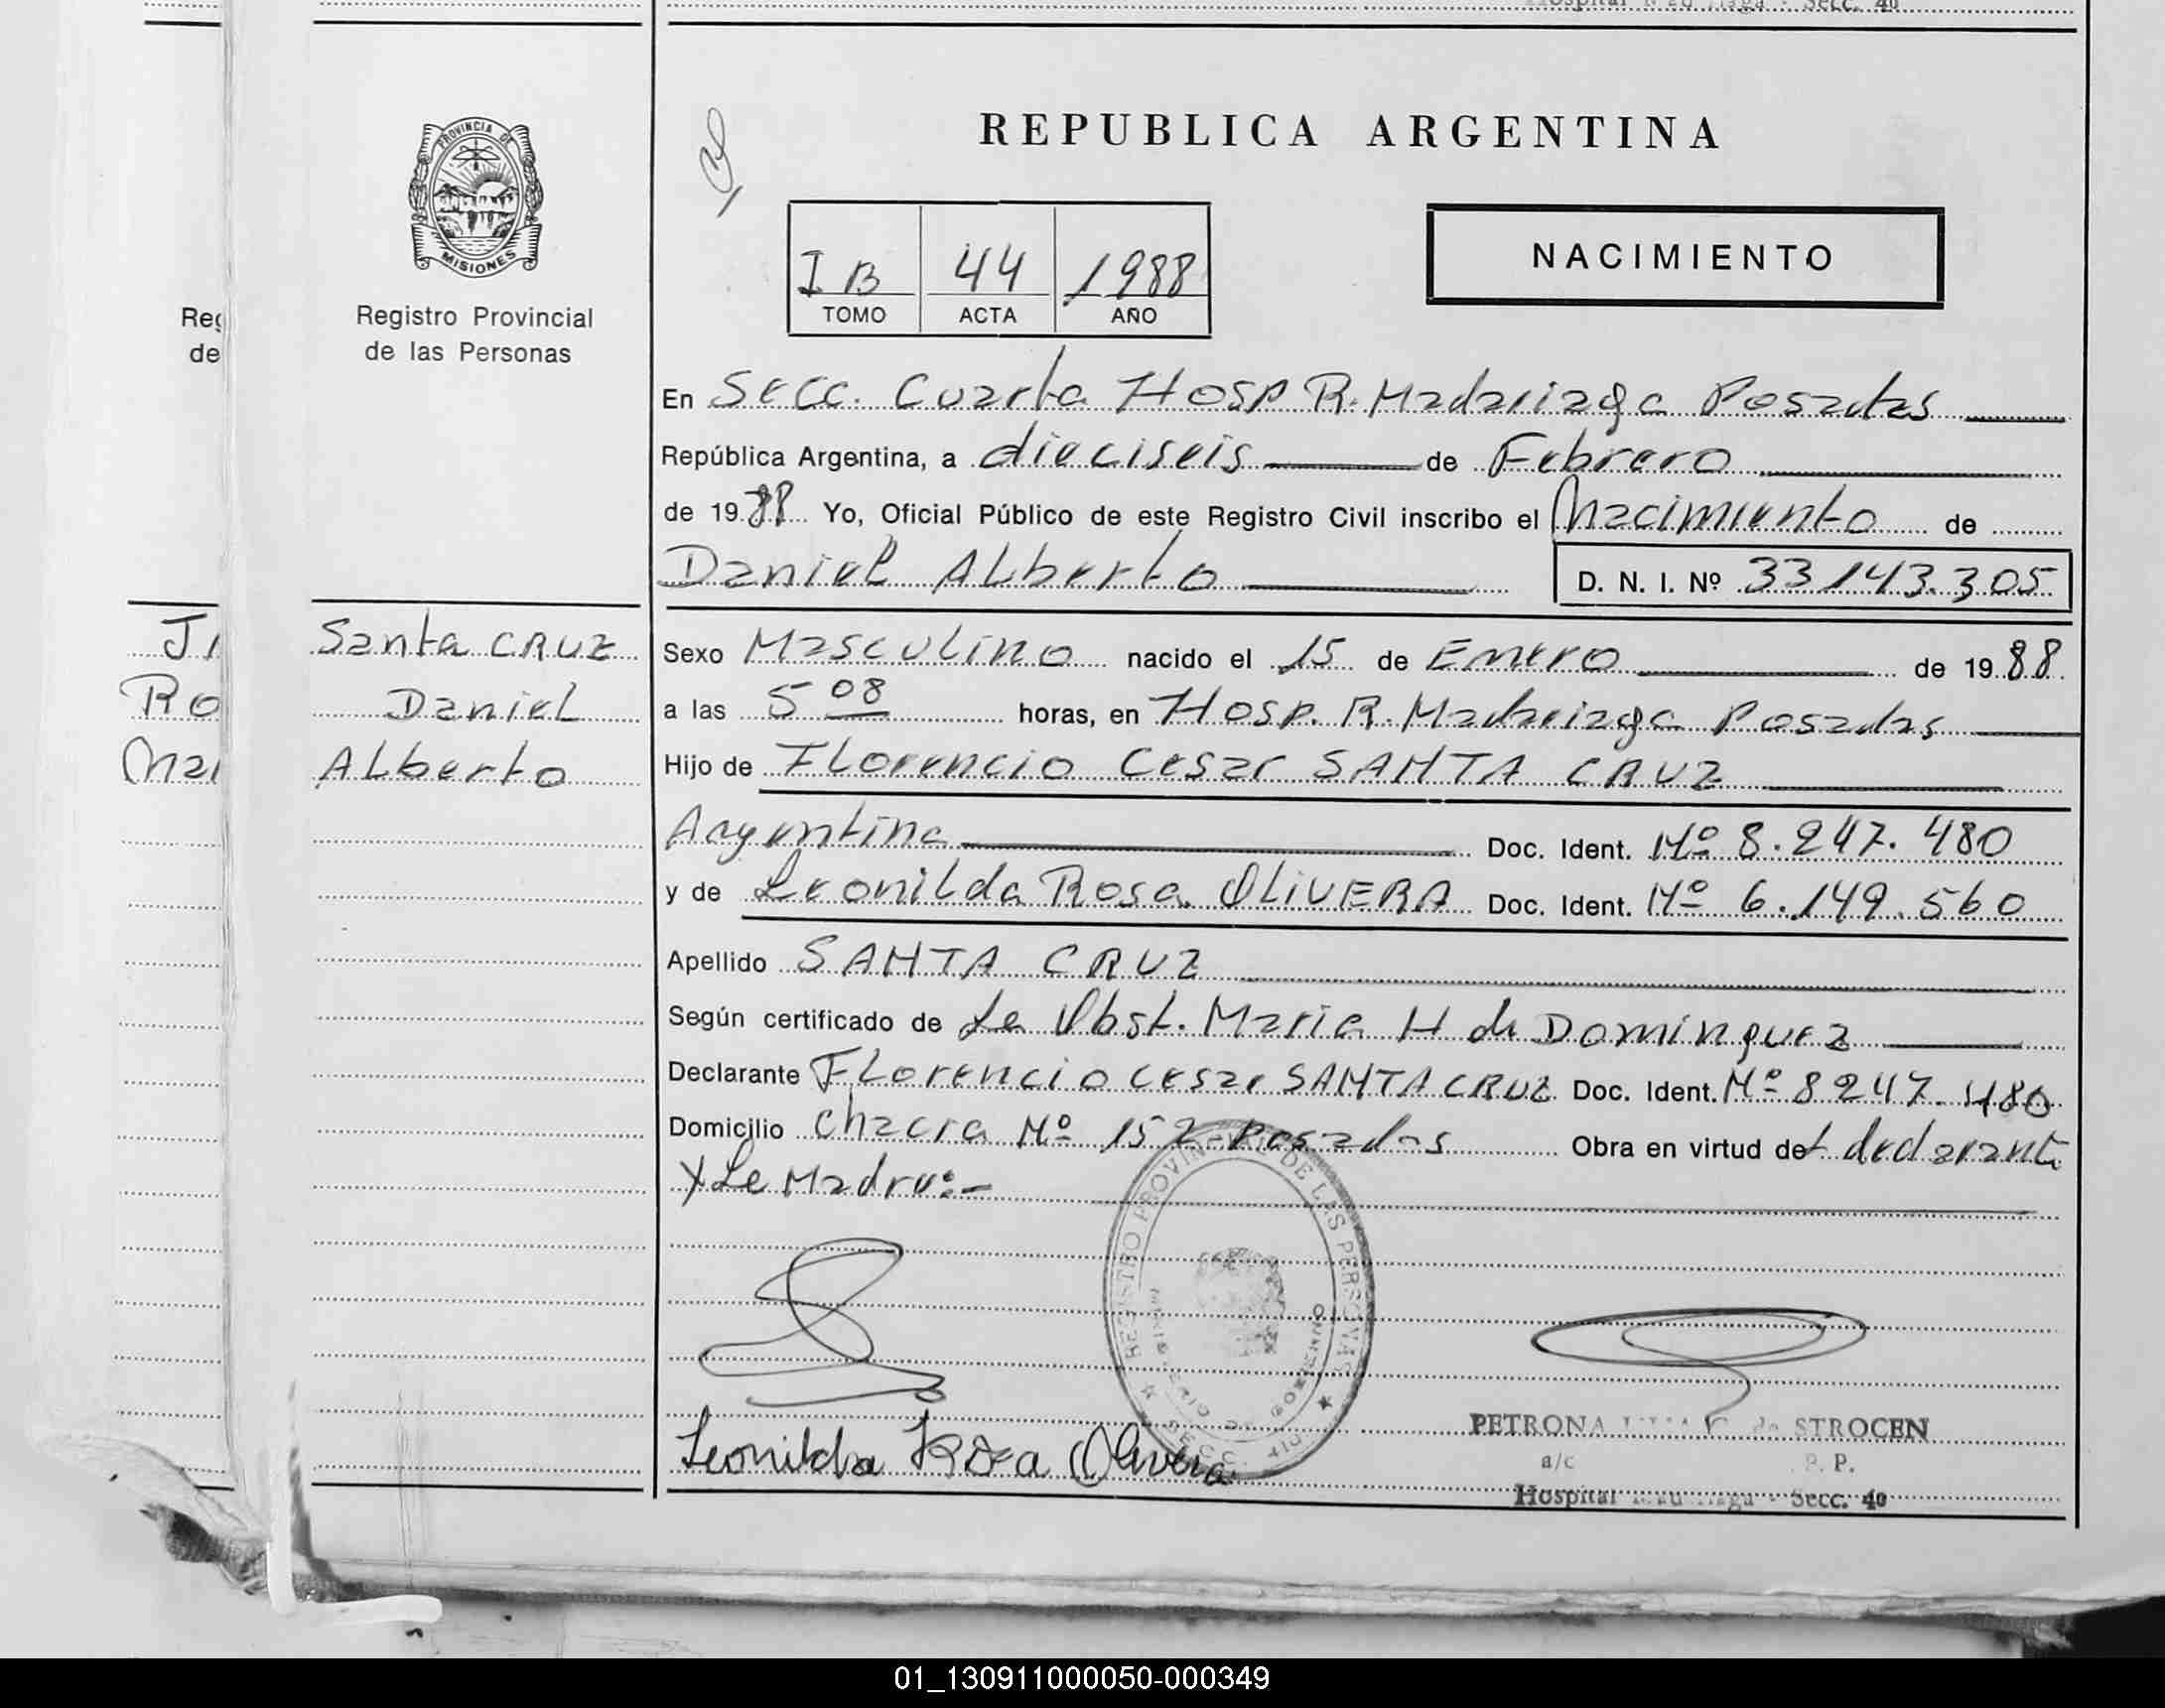 Hospital R. Madariaga - Secc. 4º
PROVINCIA DE
MISIONES
Registro Provincial
de las Personas
REPUBLICA ARGENTINA
I B 44 1988
TOMO ACTA AÑO
NACIMIENTO
En Secc. Cuarta Hosp R. Madariaga Posadas
República Argentina, a dieciseis de Febrero
de 1988 Yo, Oficial Público de este Registro Civil inscribo el Nacimiento de
Daniel Alberto D. N. I. Nº 33143.305
Reg
de
J
Ro
Mar
Santa CRUZ
Daniel
Alberto
Sexo Masculino nacido el 15 de Enero de 1988
a las 5 08 horas, en Hosp. R. Madariaga Posadas
Hijo de Florencio Cesar SANTA CRUZ
Argentina Doc. Ident. Nº 8.247.480
y de Leonilda Rosa OLIVERA Doc. Ident. Nº 6.149.560
Apellido SANTA CRUZ
Según certificado de La Obst. Maria H de Dominguez
Declarante Florencio Cesar SANTA CRUZ Doc. Ident. Nº 8247.480
Domicilio Chacra Nº 152 Posadas Obra en virtud del declarante
y La Madre:-
REGISTRO PROVINCIAL DE LAS PERSONAS
MINISTERIO DE GOBIERNO
SECC. 4ta
Leonilda Rosa Olivera
PETRONA de STROCEN
a/c P. P.
Hospital Madariaga - Secc. 4º
01_130911000050-000349